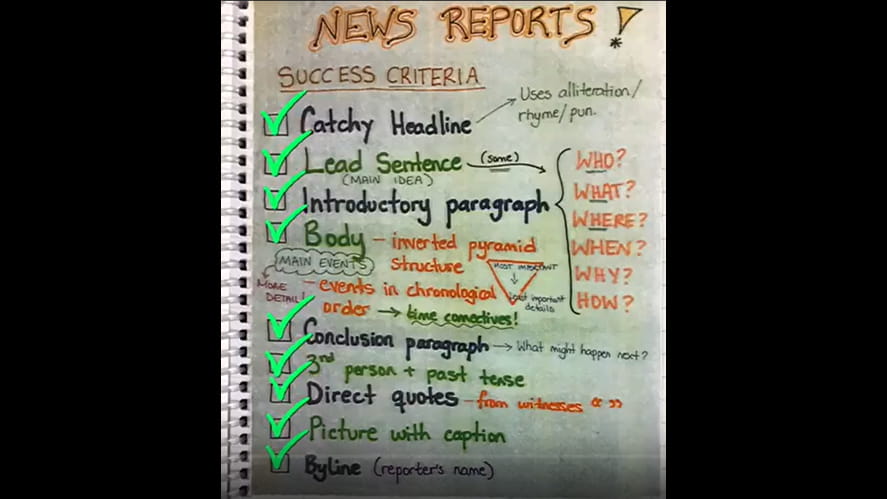 NEWS REPORTS!
SUCCESS CRITERIA
Catchy Headline
Uses alliteration/
rhyme/pun.
Lead Sentence (some)
(MAIN IDEA)
Introductory paragraph
WHO?
WHAT?
WHERE?
WHEN?
WHY?
HOW?
Body - inverted pyramid
structure
MAIN EVENTS
MORE
DETAIL!
MOST IMPORTANT
Least important
details
- events in chronological
order → time connectives!
Conclusion paragraph → What might happen next?
3rd person + past tense
Direct quotes - from witnesses “ ”
Picture with caption
Byline (reporter's name)